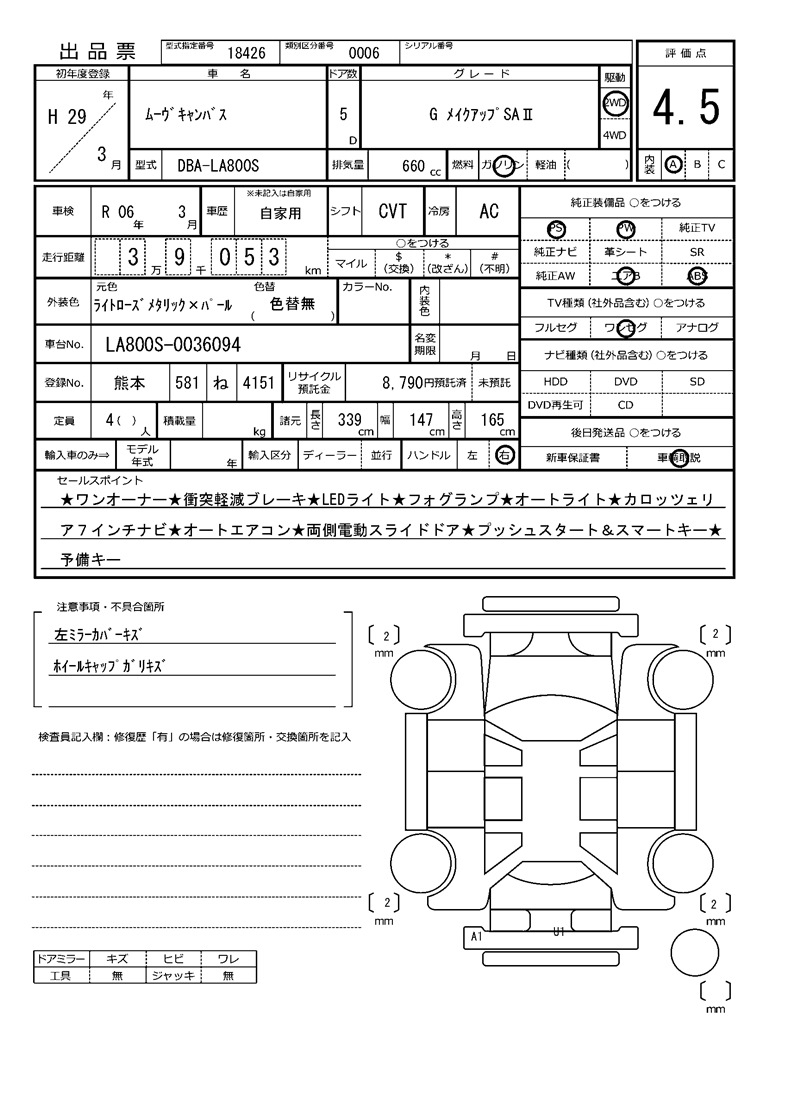 出品票 型式指定番号 18426 類別区分番号 0006 シリアル番号
初年度登録 車名 ドア数 グレード 駆動 評価点
H 29 年 3 月 ムーヴキャンバス 5 D G メイクアップSAⅡ 2WD 4WD 4.5
型式 DBA-LA800S 排気量 660 cc 燃料 ガソリン 軽油 ( ) 内装 A B C
車検 R 06 年 3 月 車歴 ※未記入は自家用 自家用 シフト CVT 冷房 AC
純正装備品 ○をつける
PS PW 純正TV
走行距離 3 万 9 千 0 5 3 km ○をつける
マイル $ (交換) * (改ざん) # (不明)
純正ナビ 革シート SR
純正AW エアB ABS
外装色 元色 ライトローズメタリック×パール 色替 ( 色替無 ) カラーNo. 内装色
TV種類(社外品含む) ○をつける
フルセグ ワンセグ アナログ
車台No. LA800S-0036094 名変期限 月 日
ナビ種類(社外品含む) ○をつける
HDD DVD SD
DVD再生可 CD
登録No. 熊本 581 ね 4151 リサイクル預託金 8,790円預託済 未預託
定員 4( ) 人 積載量 kg 諸元 長さ 339 cm 幅 147 cm 高さ 165 cm
後日発送品 ○をつける
新車保証書 車輌取説
輸入車のみ⇒ モデル年式 年 輸入区分 ディーラー 並行 ハンドル 左 右
セールスポイント
★ワンオーナー★衝突軽減ブレーキ★LEDライト★フォグランプ★オートライト★カロッツェリ
ア7インチナビ★オートエアコン★両側電動スライドドア★プッシュスタート&スマートキー★
予備キー
注意事項・不具合箇所
左ミラーカバーキズ
ホイールキャップガリキズ
検査員記入欄:修復歴「有」の場合は修復箇所・交換箇所を記入
[ 2 ] mm [ 2 ] mm
[ 2 ] mm [ 2 ] mm
A1 U1
[ ] mm
ドアミラー キズ ヒビ ワレ
工具 無 ジャッキ 無